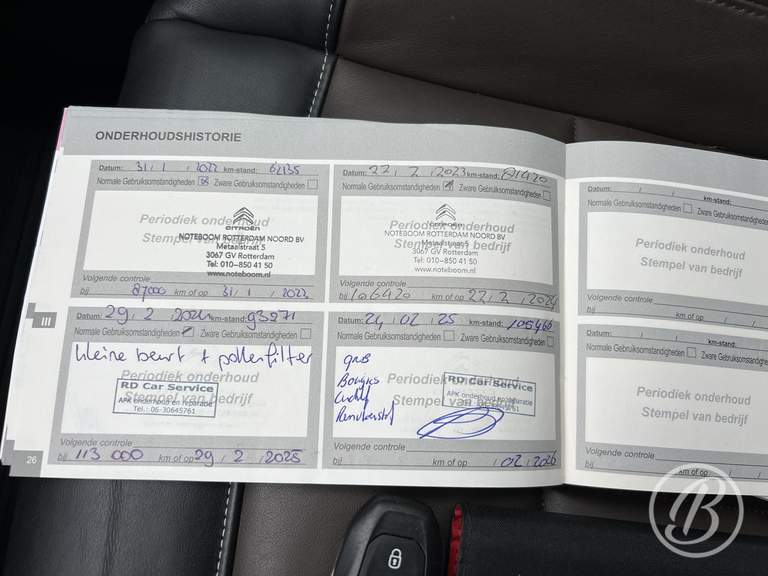 ONDERHOUDSHISTORIE
Datum: 31/1/2022 km-stand: 62135
Normale Gebruiksomstandigheden Zware Gebruiksomstandigheden
Periodiek onderhoud
Stempel van bedrijf
CITROËN
NOTEBOOM ROTTERDAM NOORD BV
Metaalstraat 5
3067 GV Rotterdam
Tel: 010-850 41 50
www.noteboom.nl
Volgende controle
bij 87000 km of op 31/1/2022
Datum: 22/2/2023 km-stand: 81420
Normale Gebruiksomstandigheden Zware Gebruiksomstandigheden
Periodiek onderhoud
Stempel van bedrijf
CITROËN
NOTEBOOM ROTTERDAM NOORD BV
Metaalstraat 5
3067 GV Rotterdam
Tel: 010-850 41 50
www.noteboom.nl
Volgende controle
bij 106420 km of op 22/2/2024
Datum: / / km-stand:
Normale Gebruiksomstandigheden Zware Gebr
Periodiek onderhoud
Stempel van bedrijf
Volgende controle
bij km of op / /
III
Datum: 29/2/2024 km-stand: 93971
Normale Gebruiksomstandigheden Zware Gebruiksomstandigheden
kleine beurt + pollenfilter
Periodiek onderhoud
Stempel van bedrijf
RD Car Service
APK onderhoud en reparatie
Tel.: 06-30645761
Volgende controle
bij 113 000 km of op 29/2/2025
Datum: 24/02/25 km-stand: 105466
Normale Gebruiksomstandigheden Zware Gebruiksomstandigheden
Bougies
Periodiek onderhoud
Stempel van bedrijf
RD Car Service
APK onderhoud en reparatie
Volgende controle
bij km of op /02/2026
Datum: / / km-stand:
Normale Gebruiksomstandigheden Zware
Periodiek onderhoud
Stempel van bedrijf
Volgende controle
bij km of op / /
26
B